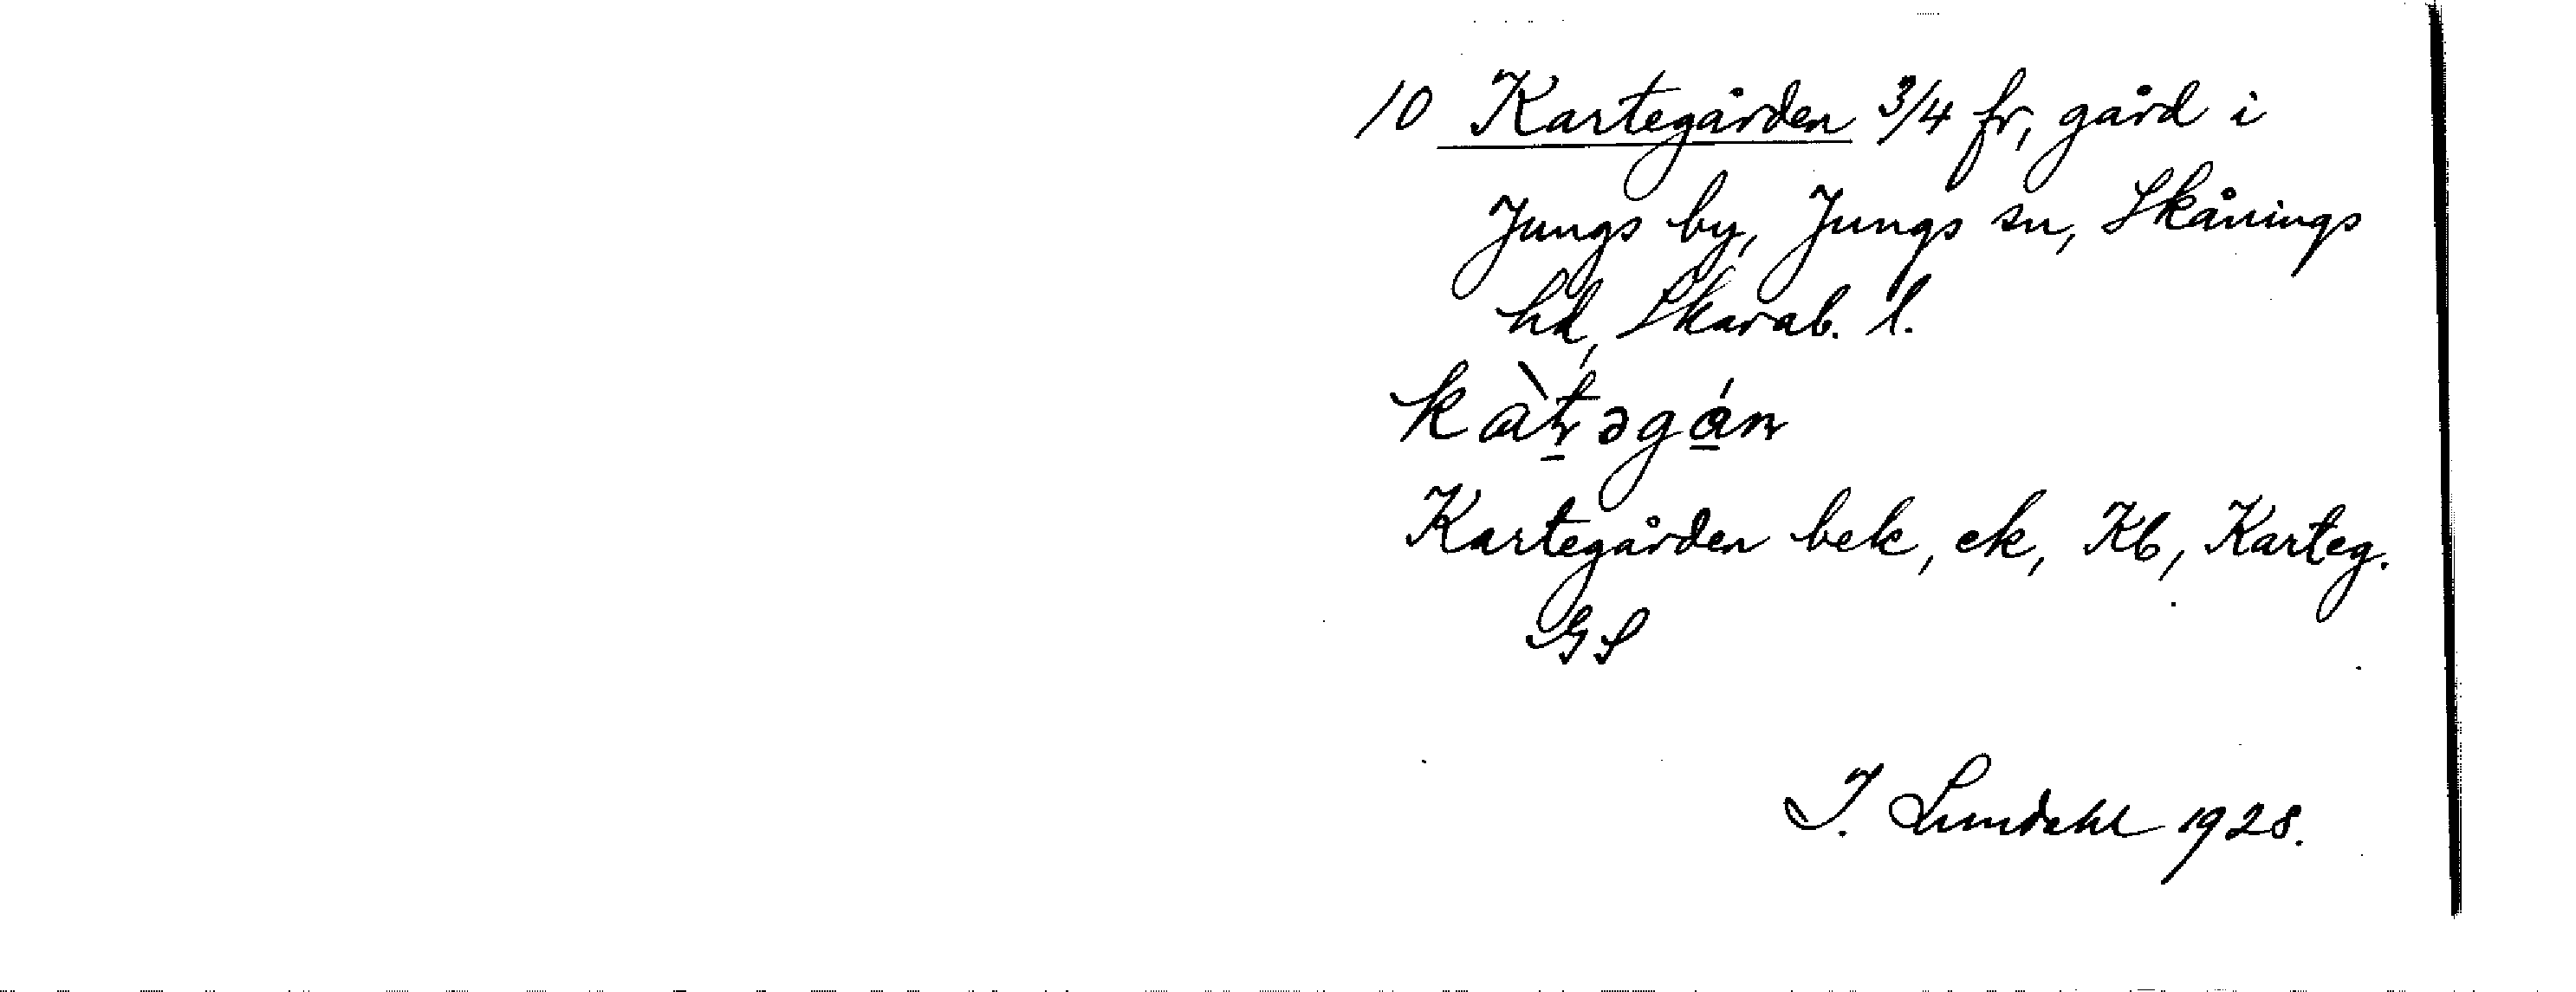 10 Kartegården 3/4 fr, gård i
Jungs by, Jungs sn, Skånings
hd, Skarab. l.
kàt̠əgá̠n
Kartegården bek, ek, Kb, Karteg.
GS
I. Lundahl 1928.